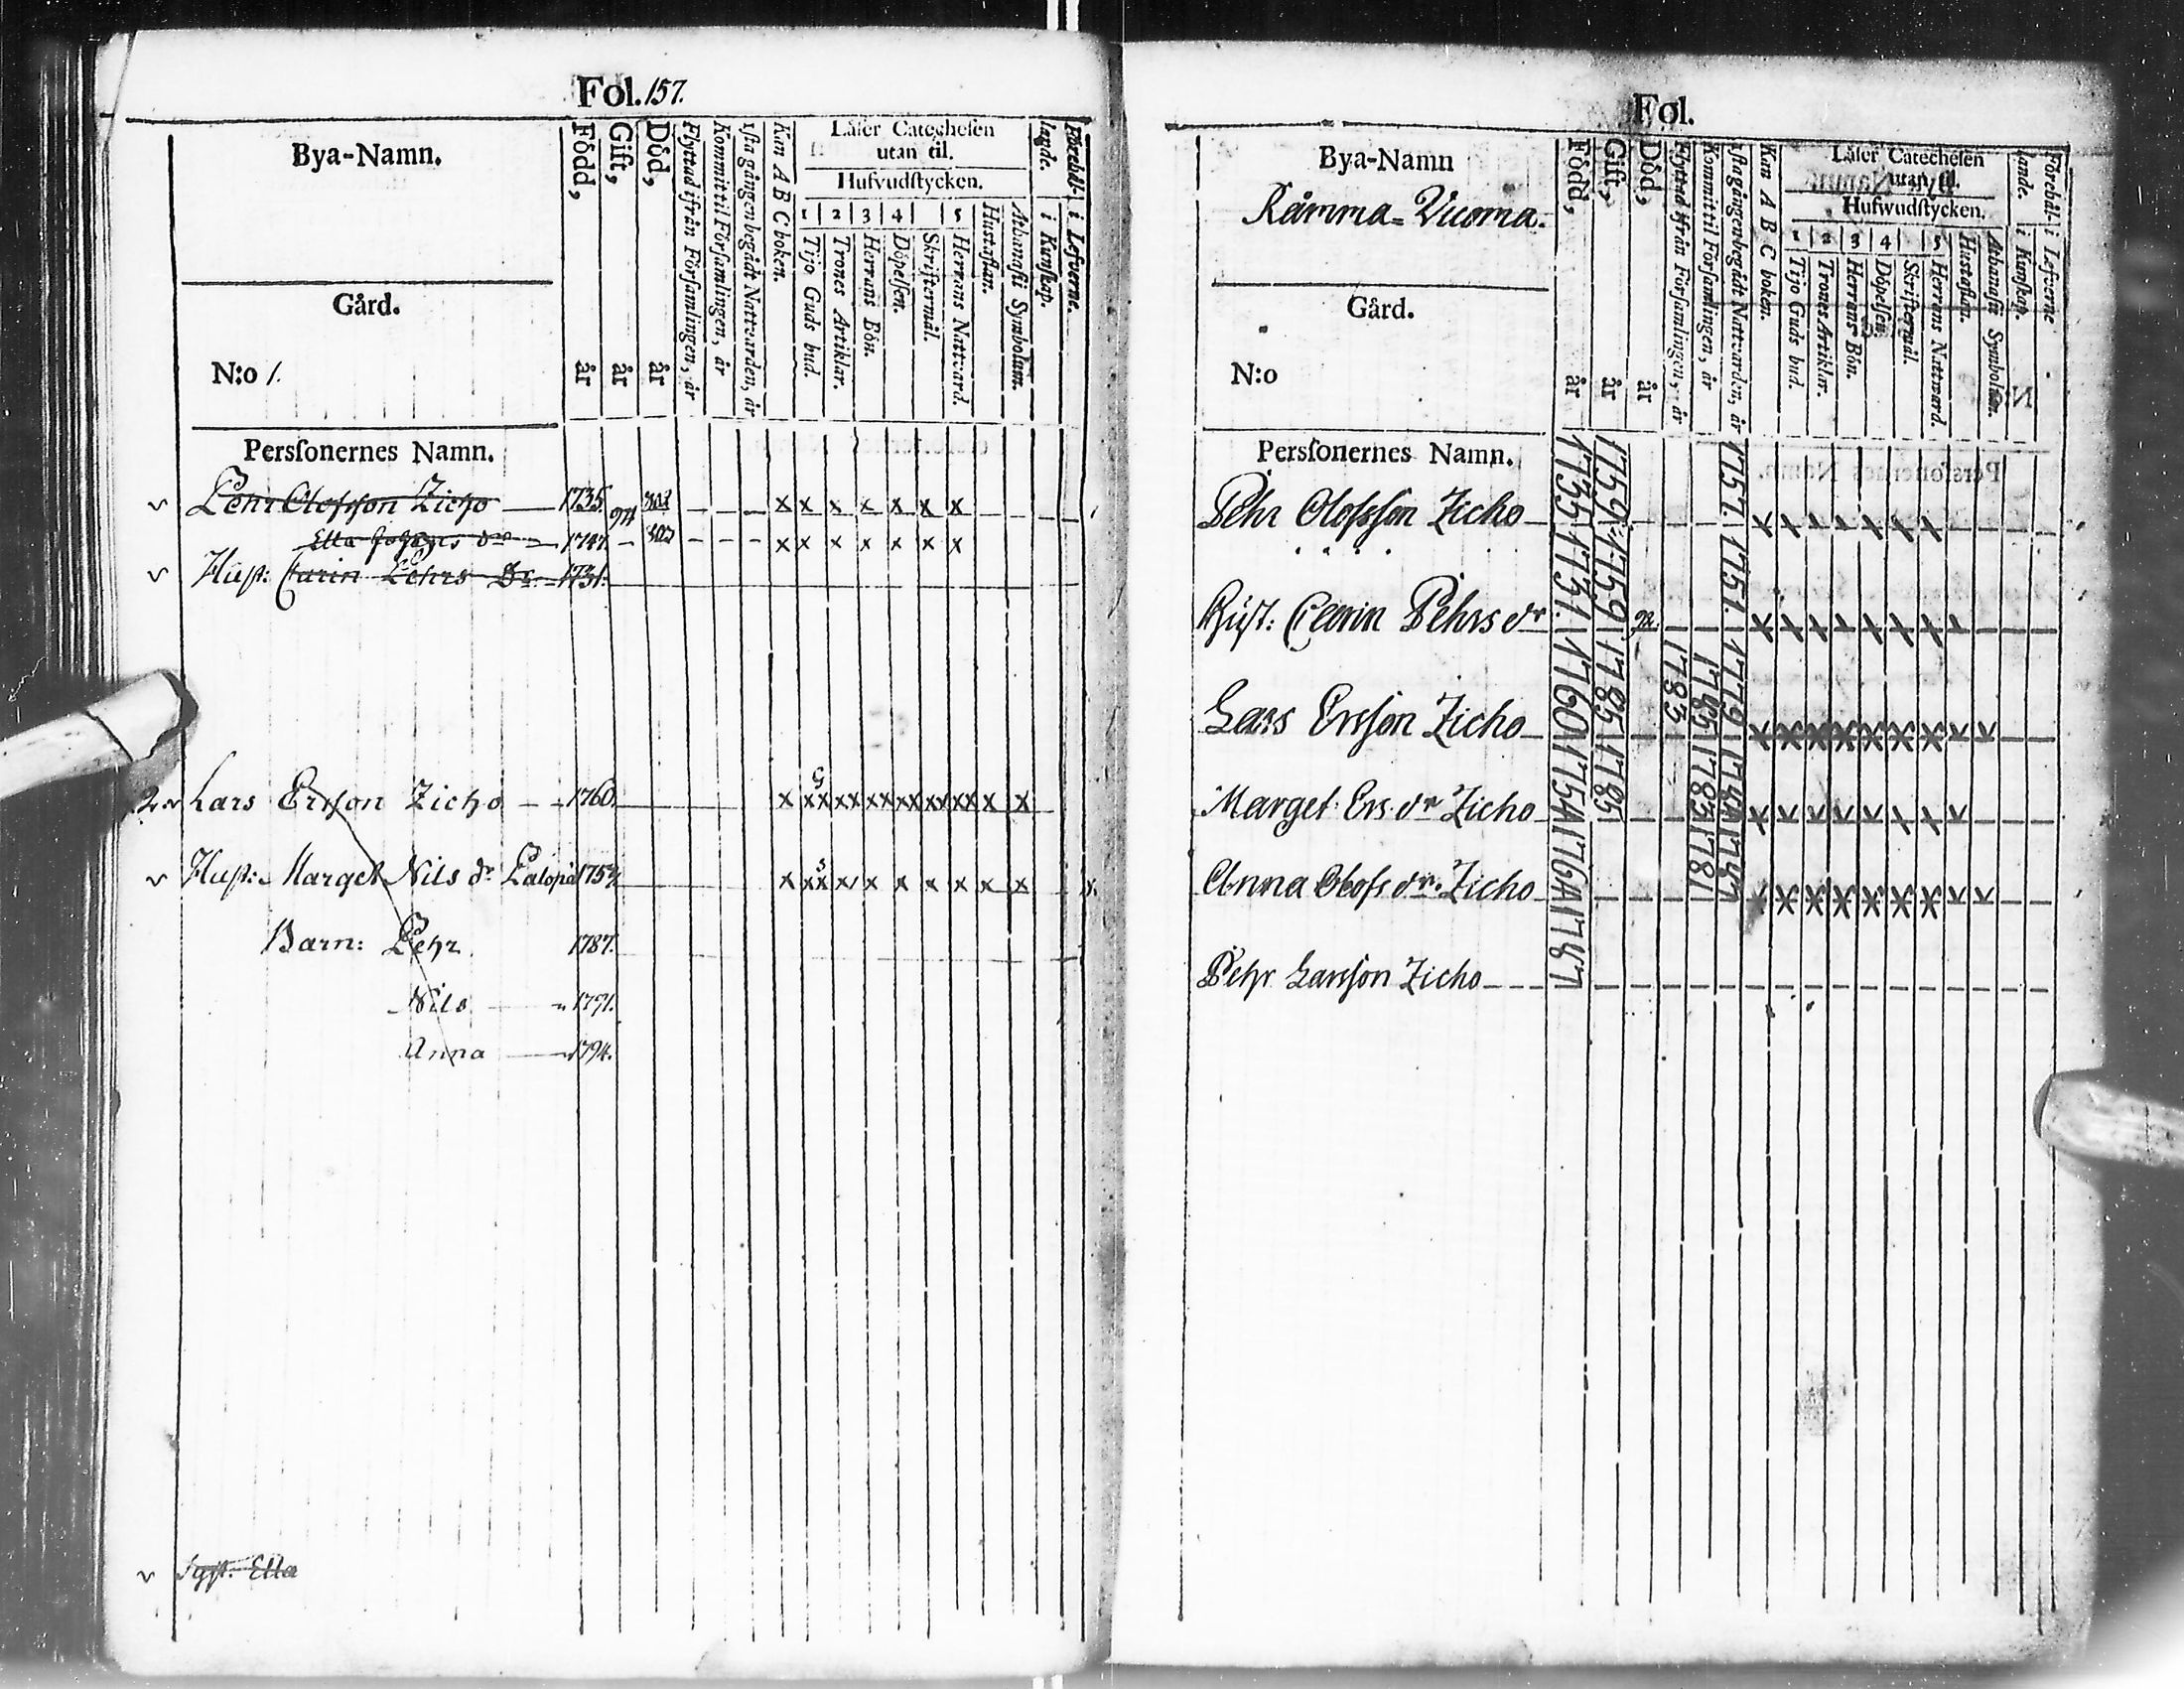 Fol. 157.
Bya-Namn.
Gård.
N:o 1.
Född, år
Gift, år
Död, år
Flyttad ifrån Församlingen, år
Kommit til Församlingen, år
1sta gången begådt Nattvarden, år
Kan A B C boken.
Läser Catechesen
utan til.
Hufvudstycken.
1 2 3 4 5
Tijo Guds bud.
Trones Artiklar.
Herrans Bön.
Döpelsen.
Skriftermål.
Herrans Nattvard.
Hustaflan.
Athanasii Symbolum.
Förehål- i Lefverne.
lande. i Kunskap.
Personernes Namn.
v Pehr Olofsson Zicho 1735. x x x x x x x
Ella 1747. x x x x x x x
v Hust: Carin Pehrs Dr. 1731.
2. v Lars Ersson Zicho 1760. x xx xx xx xx xx xx x x
v Hust: Marget Nils dr 1754. x xx x x x x x x x
Barn: Pehr 1787.
Nils 1791.
Anna 1794.
v Ella
Fol.
Bya-Namn
Rämma-Vuoma.
Gård.
N:o
Född, år
Gift, år
Död, år
Flyttad ifrån Församlingen, år
Kommit til Församlingen, år
1sta gången begådt Nattvarden, år
Kan A B C boken.
Läser Catechesen
utan til.
Hufwudstycken.
1 2 3 4 5
Tijo Guds bud.
Trones Artiklar.
Herrans Bön.
Döpelsen.
Skriftermål.
Herrans Nattward.
Hustaflan.
Athanasii Symbolum.
Förehål- i Lefverne
lande. i Kunskap.
Personernes Namn.
Pehr Olofsson Zicho 1735 1759 1757 x x x x x x x
Hust: Carin Pehrs dr 1731. 1759 1751. x x x x x x x x
Lars Ersson Zicho 1760 1785 1783 1785 1779 x x x x x x x x x
Marget Ers dr Zicho 1754 1785 1785 x x x x x x x x
Anna Olofs dr. Zicho 1764 1781 x x x x x x x x x
Pehr Larsson Zicho 1787